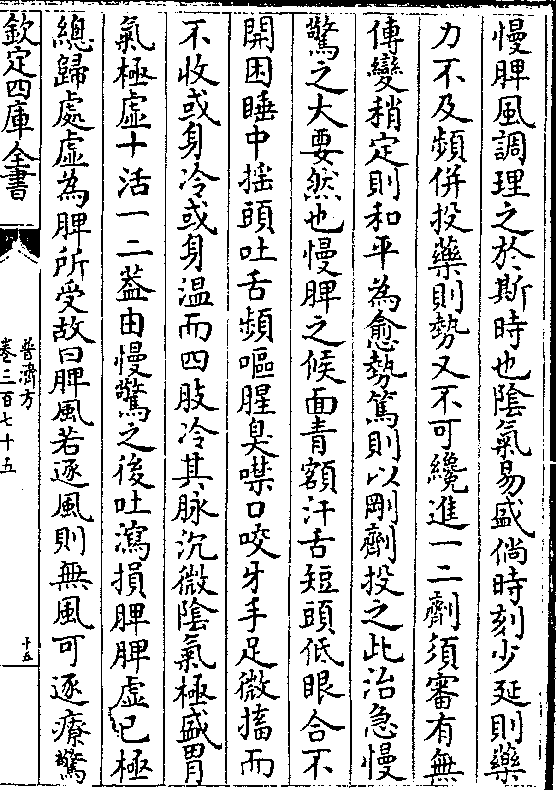 慢脾風調理之於斯時也陰氣易盛倘時刻少延則藥
力不及頻併投藥則勢又不可纔進一二劑須審有無
傳變稍定則和平為愈勢篤則以剛劑投之此治急慢
驚之大要然也慢脾之候面青額汗舌短頭低眼合不
開困睡中搖頭吐舌頻嘔腥臭噤口咬牙手足微搐而
不收或身冷或身溫而四肢冷其脉沉微陰氣極盛胃
氣極虛十活一二葢由慢驚之後吐瀉損脾脾虛已極
總歸處虛為脾所受故曰脾風若逐風則無風可逐療驚
欽定四庫全書
普濟方
卷三百七十五
十五